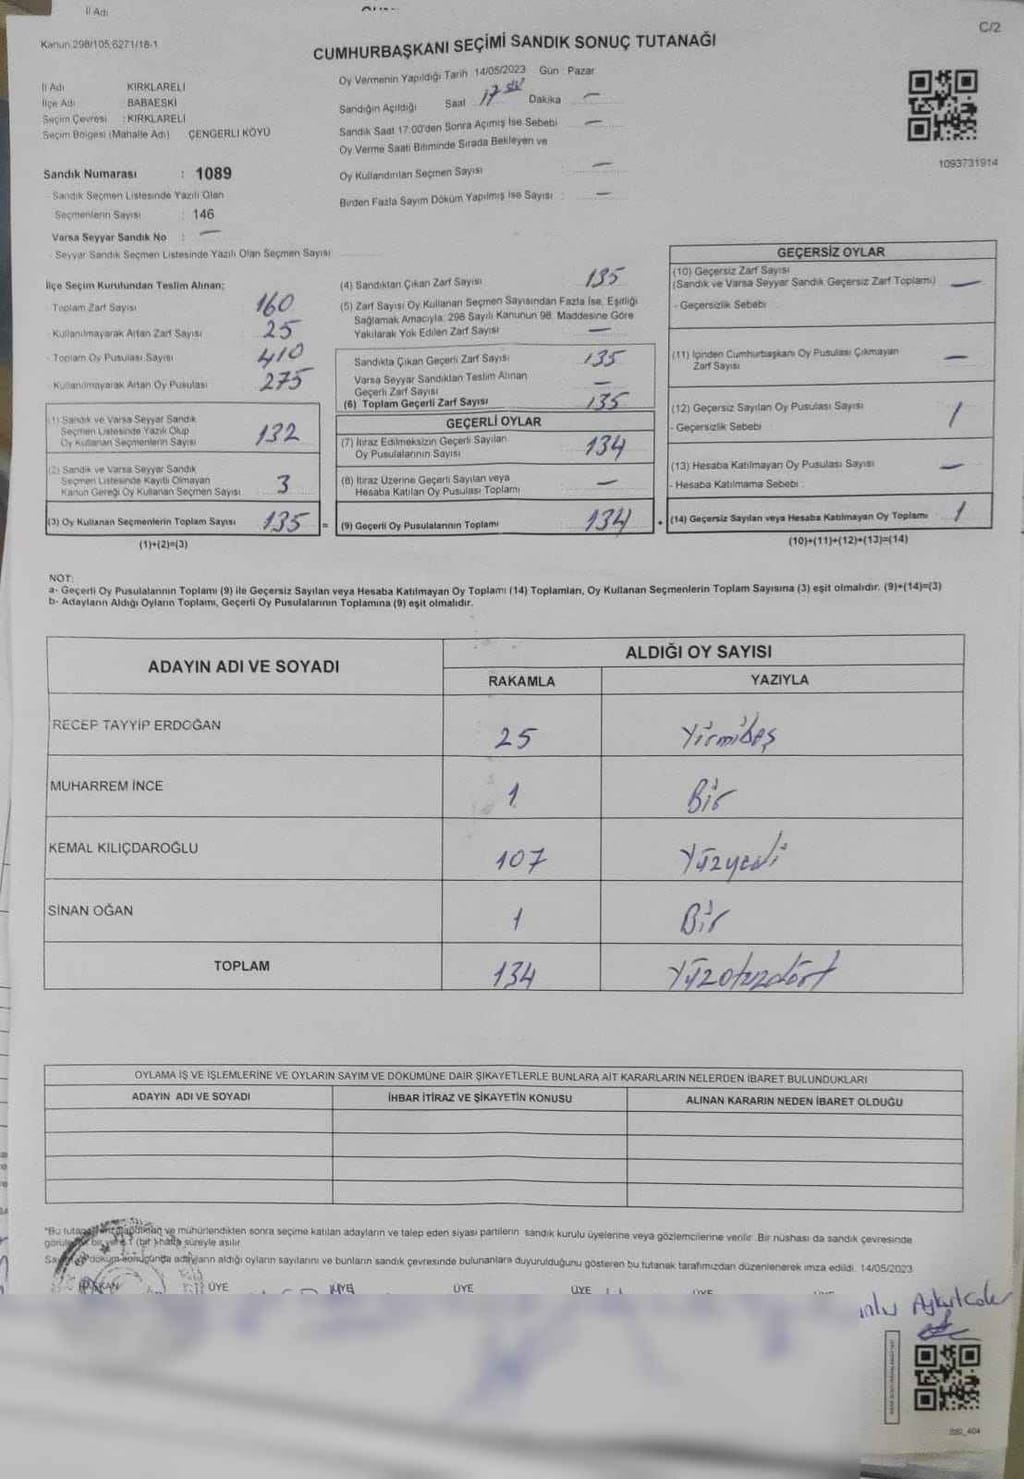 İl Adı
Kanun 298/105,6271/18-1
C/2
CUMHURBAŞKANI SEÇİMİ SANDIK SONUÇ TUTANAĞI
İl Adı : KIRKLARELİ
İlçe Adı : BABAESKİ
Seçim Çevresi : KIRKLARELİ
Seçim Bölgesi (Mahalle Adı) : ÇENGERLİ KÖYÜ
Oy Vermenin Yapıldığı Tarih : 14/05/2023 Gün : Pazar
Sandığın Açıldığı Saat 17 Dakika —
Sandık Saat 17:00'den Sonra Açımış İse Sebebi —
Oy Verme Saati Bitiminde Sırada Bekleyen ve
Oy Kullandırılan Seçmen Sayısı —
Birden Fazla Sayım Döküm Yapılmış ise Sayısı : —
1093731914
Sandık Numarası : 1089
- Sandık Seçmen Listesinde Yazılı Olan
Seçmenlerin Sayısı : 146
Varsa Seyyar Sandık No : —
- Seyyar Sandık Seçmen Listesinde Yazılı Olan Seçmen Sayısı
İlçe Seçim Kurulundan Teslim Alınan;
- Toplam Zarf Sayısı 160
- Kullanılmayarak Artan Zarf Sayısı 25
- Toplam Oy Pusulası Sayısı 410
- Kullanılmayarak Artan Oy Pusulası 275
(1) Sandık ve Varsa Seyyar Sandık
Seçmen Listesinde Yazılı Olup
Oy Kullanan Seçmenlerin Sayısı 132
(2) Sandık ve Varsa Seyyar Sandık
Seçmen Listesinde Kayıtlı Olmayan
Kanun Gereği Oy Kullanan Seçmen Sayısı 3
(3) Oy Kullanan Seçmenlerin Toplam Sayısı 135 =
(1)+(2)=(3)
(4) Sandıktan Çıkan Zarf Sayısı 135
(5) Zarf Sayısı Oy Kullanan Seçmen Sayısından Fazla İse, Eşitliği
Sağlamak Amacıyla, 298 Sayılı Kanunun 98. Maddesine Göre
Yakılarak Yok Edilen Zarf Sayısı —
Sandıkta Çıkan Geçerli Zarf Sayısı 135
Varsa Seyyar Sandıktan Teslim Alınan
Geçerli Zarf Sayısı —
(6) Toplam Geçerli Zarf Sayısı 135
GEÇERLİ OYLAR
(7) İtiraz Edilmeksizin Geçerli Sayılan
Oy Pusulalarının Sayısı 134
(8) İtiraz Üzerine Geçerli Sayılan veya
Hesaba Katılan Oy Pusulası Toplamı —
(9) Geçerli Oy Pusulalarının Toplamı 134 +
GEÇERSİZ OYLAR
(10) Geçersiz Zarf Sayısı
(Sandık ve Varsa Seyyar Sandık Geçersiz Zarf Toplamı) —
- Geçersizlik Sebebi :
(11) İçinden Cumhurbaşkanı Oy Pusulası Çıkmayan
Zarf Sayısı —
(12) Geçersiz Sayılan Oy Pusulası Sayısı 1
- Geçersizlik Sebebi :
(13) Hesaba Katılmayan Oy Pusulası Sayısı —
- Hesaba Katılmama Sebebi :
(14) Geçersiz Sayılan veya Hesaba Katılmayan Oy Toplamı 1
(10)+(11)+(12)+(13)=(14)
NOT:
a- Geçerli Oy Pusulalarının Toplamı (9) ile Geçersiz Sayılan veya Hesaba Katılmayan Oy Toplamı (14) Toplamları, Oy Kullanan Seçmenlerin Toplam Sayısına (3) eşit olmalıdır. (9)+(14)=(3)
b- Adayların Aldığı Oyların Toplamı, Geçerli Oy Pusulalarının Toplamına (9) eşit olmalıdır.
ADAYIN ADI VE SOYADI
ALDIĞI OY SAYISI
RAKAMLA YAZIYLA
RECEP TAYYİP ERDOĞAN 25 Yirmibeş
MUHARREM İNCE 1 Bir
KEMAL KILIÇDAROĞLU 107 Yüzyedi
SİNAN OĞAN 1 Bir
TOPLAM 134 Yüzotuzdört
OYLAMA İŞ VE İŞLEMLERİNE VE OYLARIN SAYIM VE DÖKÜMÜNE DAİR ŞİKAYETLERLE BUNLARA AİT KARARLARIN NELERDEN İBARET BULUNDUKLARI
ADAYIN ADI VE SOYADI İHBAR İTİRAZ VE ŞİKAYETİN KONUSU ALINAN KARARIN NEDEN İBARET OLDUĞU
ve mühürlendikten sonra seçime katılan adayların ve talep eden siyasi partilerin sandık kurulu üyelerine veya gözlemcilerine verilir. Bir nüshası da sandık çevresinde
bir yere 1 (bir) hafta süreyle asılır.
adayların aldığı oyların sayılarını ve bunların sandık çevresinde bulunanlara duyurulduğunu gösteren bu tutanak tarafımızdan düzenlenerek imza edildi. 14/05/2023
BAŞKAN ÜYE ÜYE ÜYE ÜYE ÜYE